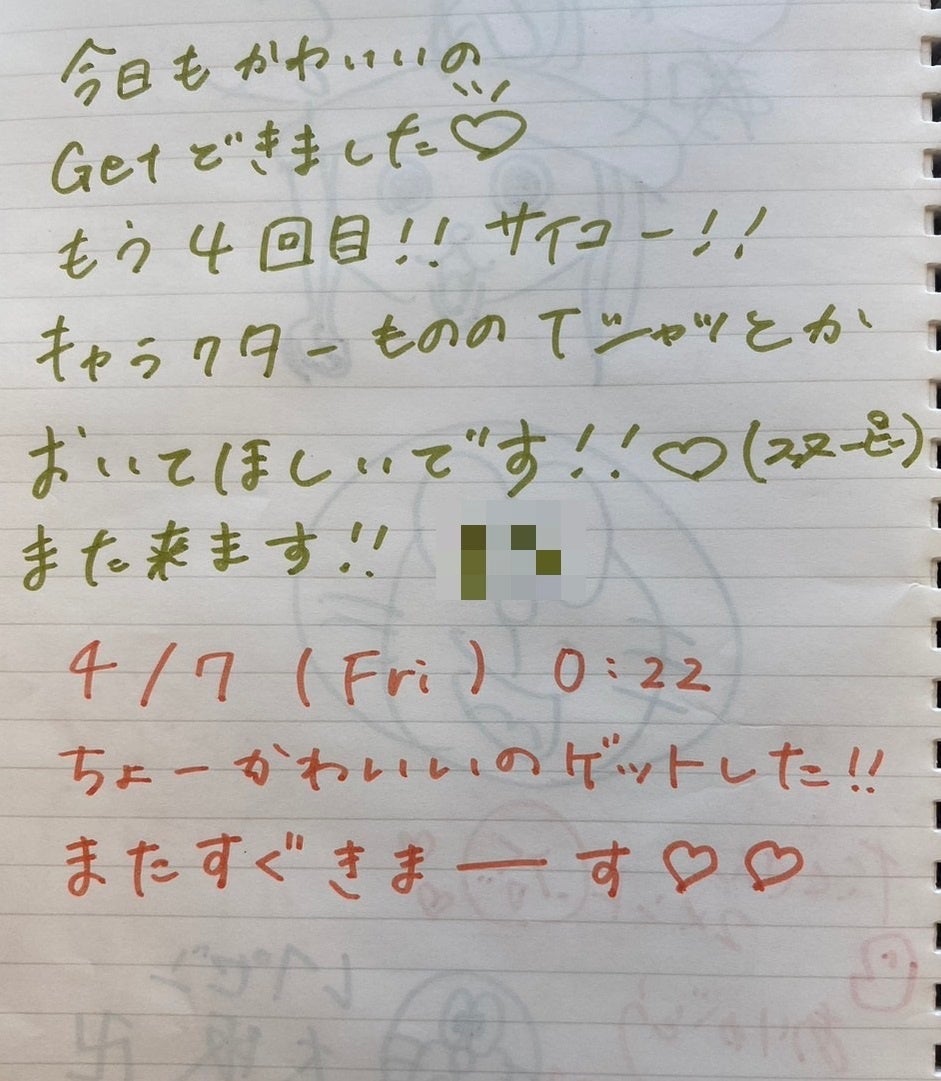 今日もかわいいの
Getできました♡
もう4回目!! サイコー!!
キャラクターもののTシャツとか
おいてほしいです!!♡(スヌーピー)
また来ます!!
4/7 (Fri) 0:22
ちょーかわいいのゲットした!!
またすぐきまーす♡♡